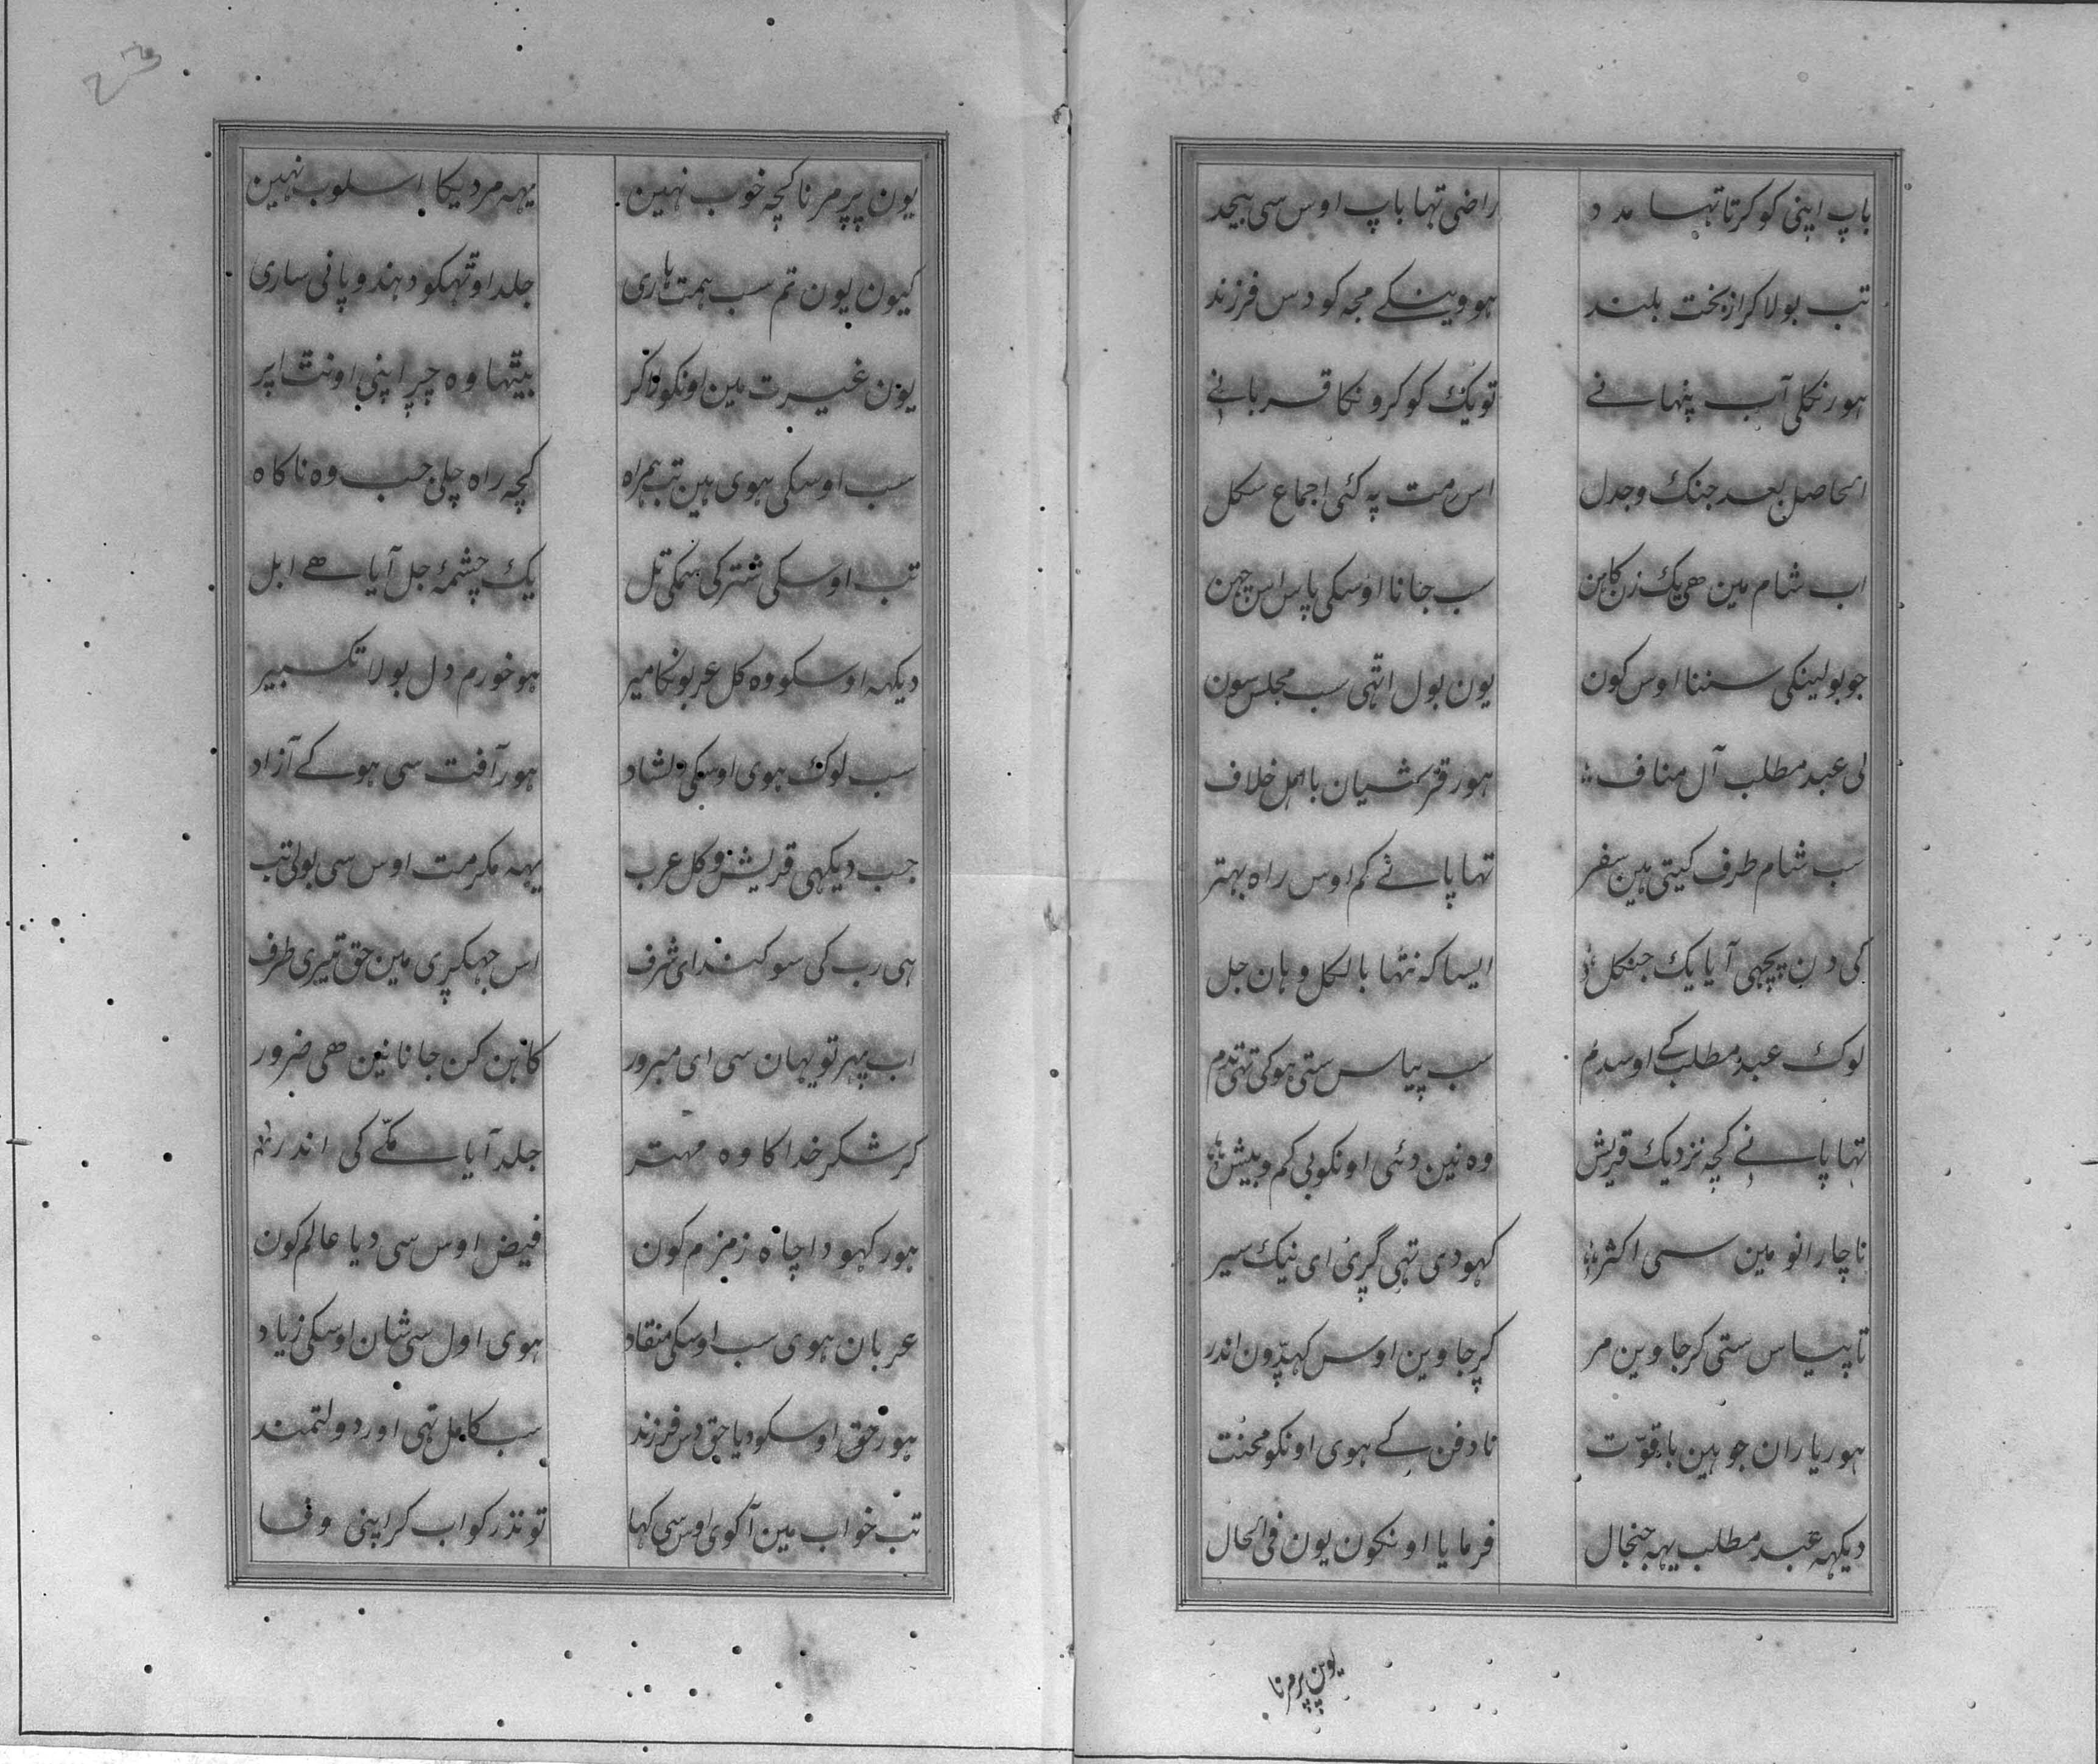 باپ اپنی کو کرتا تہا مدد راضی تہا باپ اوس سی بیحد
تب بولا کر از بخت بلند ہووینکے مجہ کو دس فرزند
ہور نکلی آب پنہانے تو یک کو کرونکا قربانے
الحاصل بعد جنک وجدل اس مت پہ کئی اجماع سکل
اب شام مین ھی یک زن کاہن سب جانا اوسکی پاس اس چہن
جو بولینکی سننا اوس کون یون بول اتہی سب مجلس سون
لی عبد مطلب آل مناف ہور قریشیان با اہل خلاف
سب شام طرف کیتی ہین سفر تہا پانے کم اوس راہ بہتر
کی دن پچہی آیا یک جنکل ایسا کہ نتہا بالکل وہان جل
لوک عبد مطلب کے اوسدم سب پیاس ستی ہوکی تہی
تہا پانے کچہ نزدیک قریش وہ نین دئی اونکو بی کم وبیش
ناچار انو مین سی اکثر کہودی تہی گڑی ای نیک سیر
تا پیاس ستی کر جاوین مر کر جاوین اوس کہڈون اندر
ہور یاران جو ہین با قوّت نا دفن کے ہوی اونکو محنت
دیکہہ عبد مطلب یہہ جنجال فرمایا اونکون یون فی الحال
یون پر مرنا
یون پر مرنا کچہ خوب نہین یہہ مردیکا اسلوب نہین
کیون یون تم سب ہمت ہاری جلد اوتہکو دہندو پانی ساری
یون غیرت مین اونکو لا کر بیتہا وہ چر اپنی اونت اپر
سب اوسکی ہوی ہین تب ہمراہ کچہ راہ چلی جب وہ ناکاہ
تب اوسکی شتر کی سمکی تل یک چشمۂ جل آیا ھے ابل
دیکہہ اوسکو وہ کل عربونکا میر ہو خورم دل بولا تکبیر
سب لوک ہوی اوسکی دلشاد ہور آفت سی ہوکے آزاد
جب دیکہی قریش و کل عرب یہہ مکرمت اوس سی بولی تب
ہی رب کی سوکند ای شرف اس جہکڑی مین حق تیری طرف
اب پہر تو یہان سی ای مبرور کاہن کن جانا نین ھی ضرور
کر شکر خدا کا وہ مہتر جلد آیا مکّے کی اندر
ہور کہودا چاہ زمزم کون فیض اوس سی دیا عالم کون
عربان ہوی سب اوسکی منقاد ہوی اول سی شان اوسکی زیاد
ہور حق اوسکو دیا دس فرزند سب کامل تہی اور دولتمند
تب خواب مین آ کوی اوس سی کہا تو نذر کو اب کر اپنی وفا